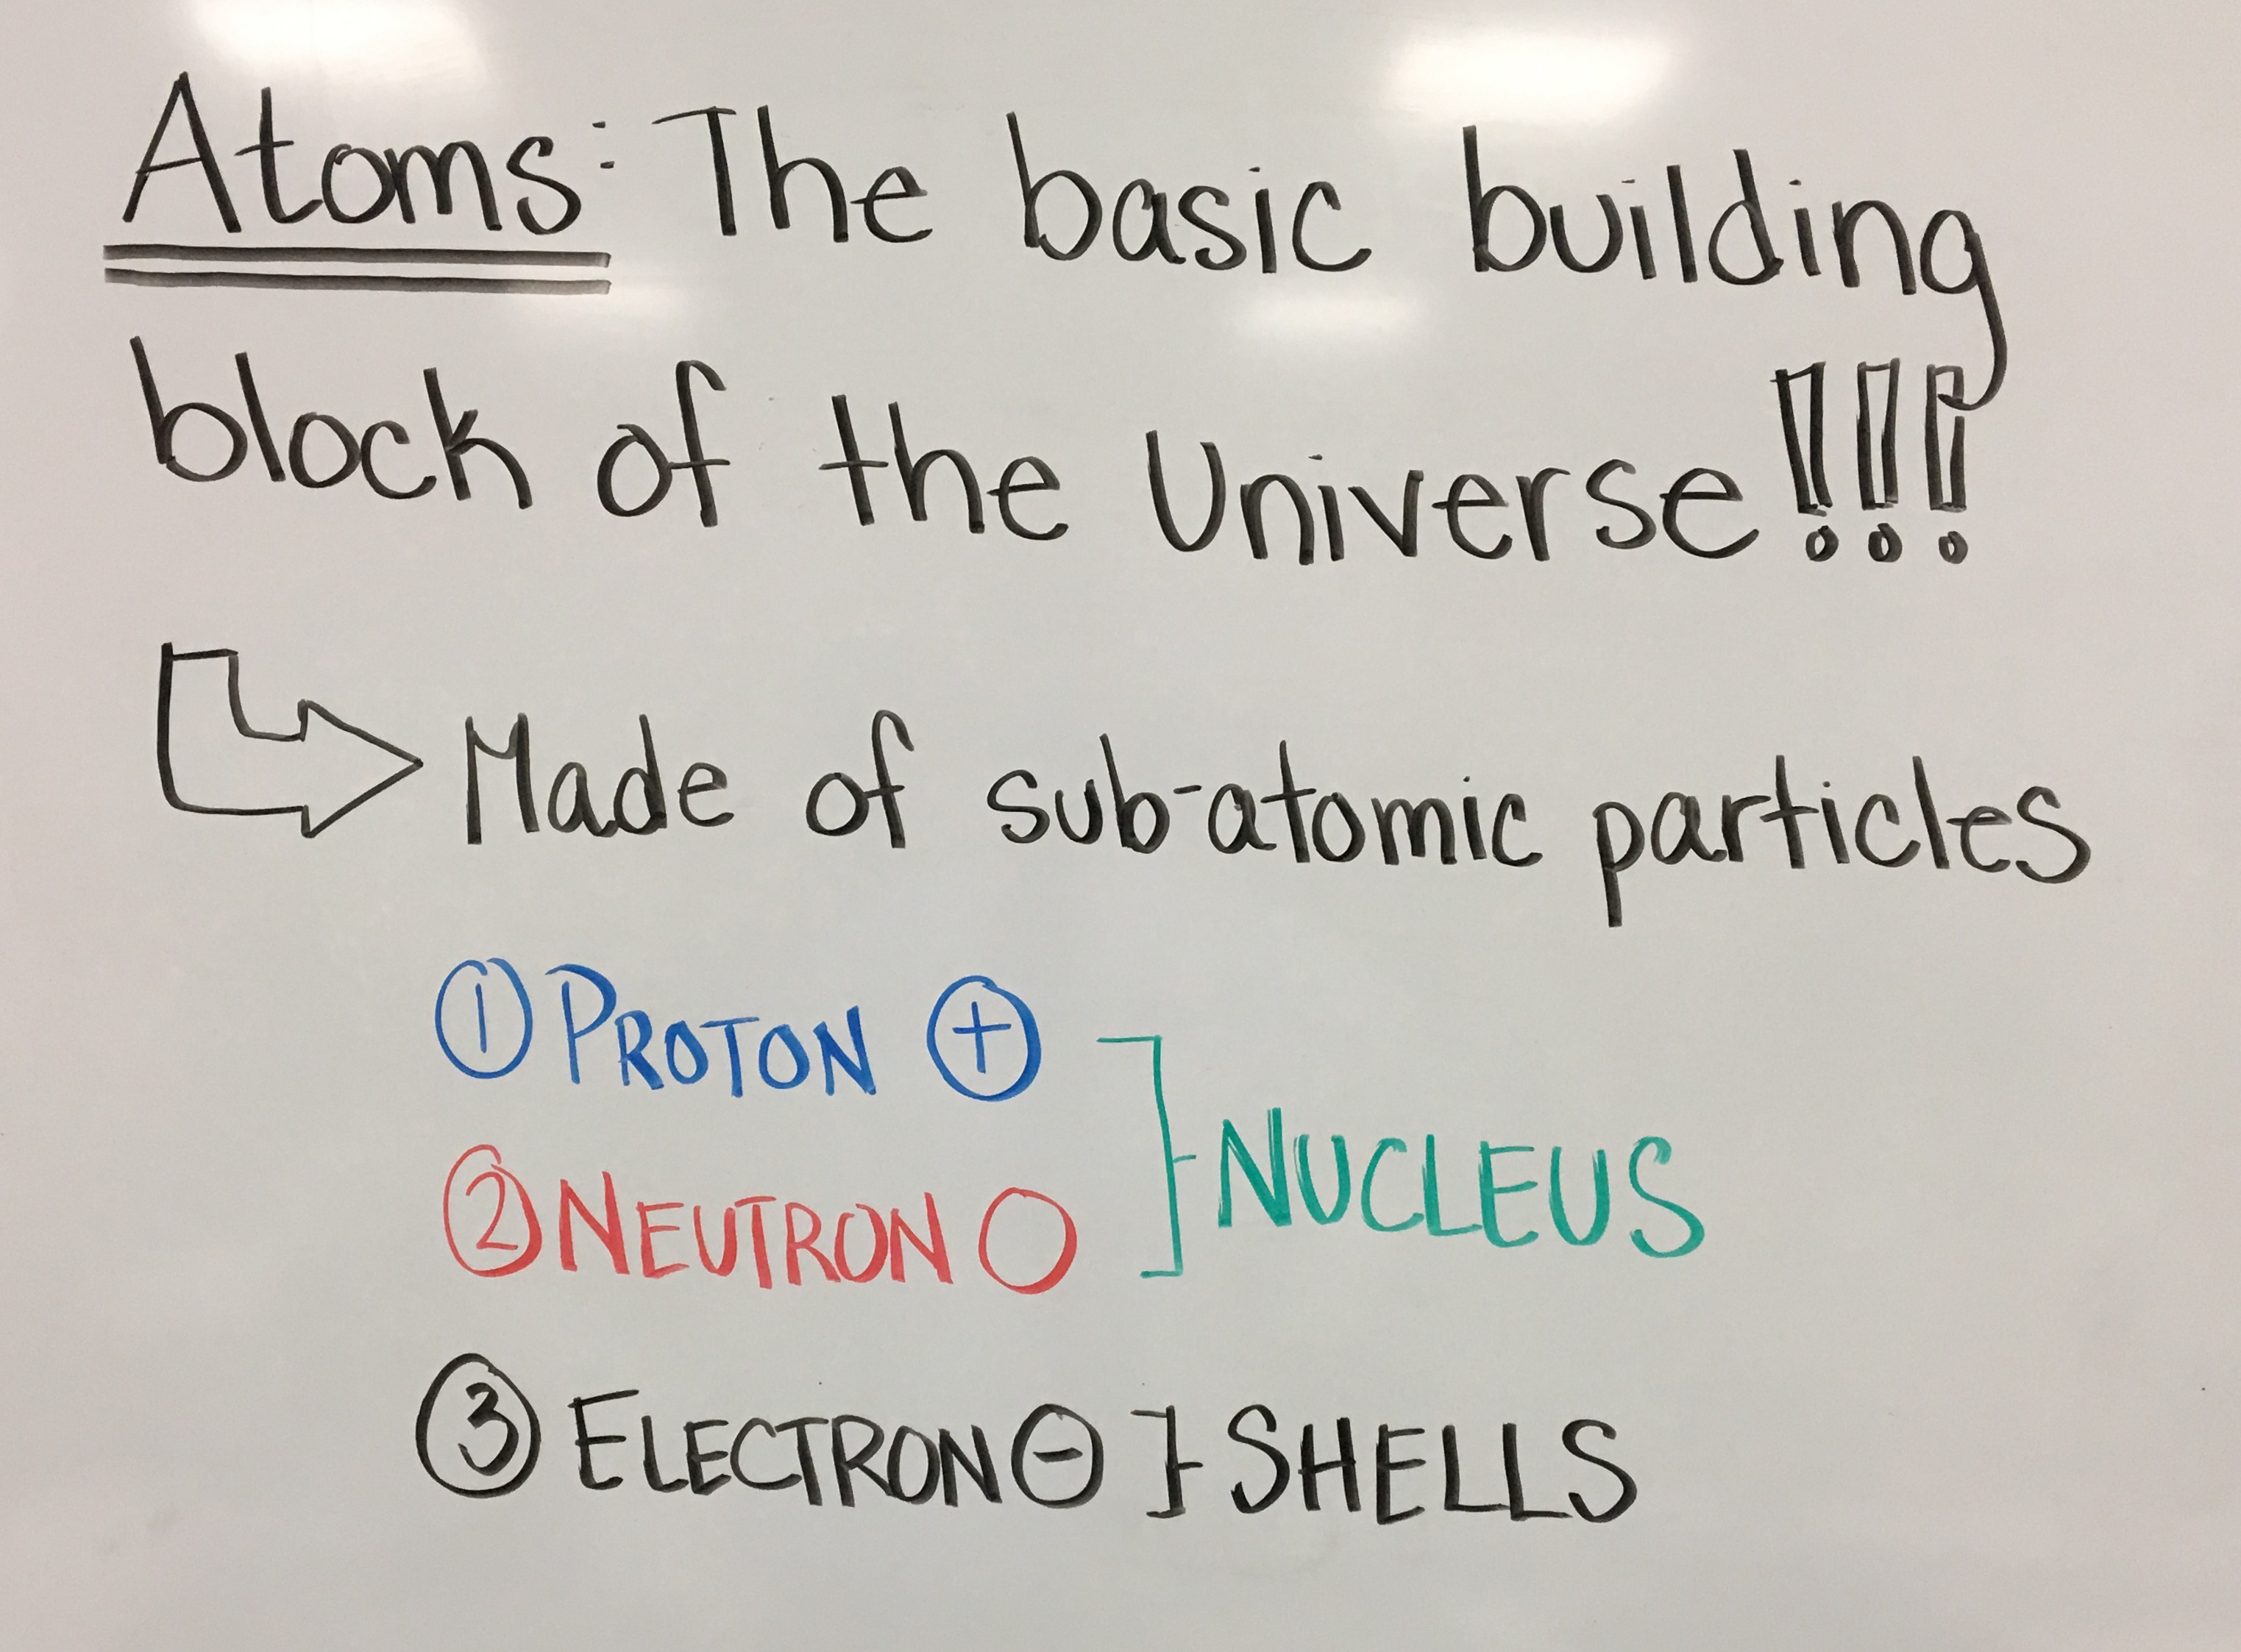 Atoms: The basic building
block of the Universe!!!
Made of sub-atomic particles
① PROTON ⊕
② NEUTRON ○
] NUCLEUS
③ ELECTRON ⊖ } SHELLS